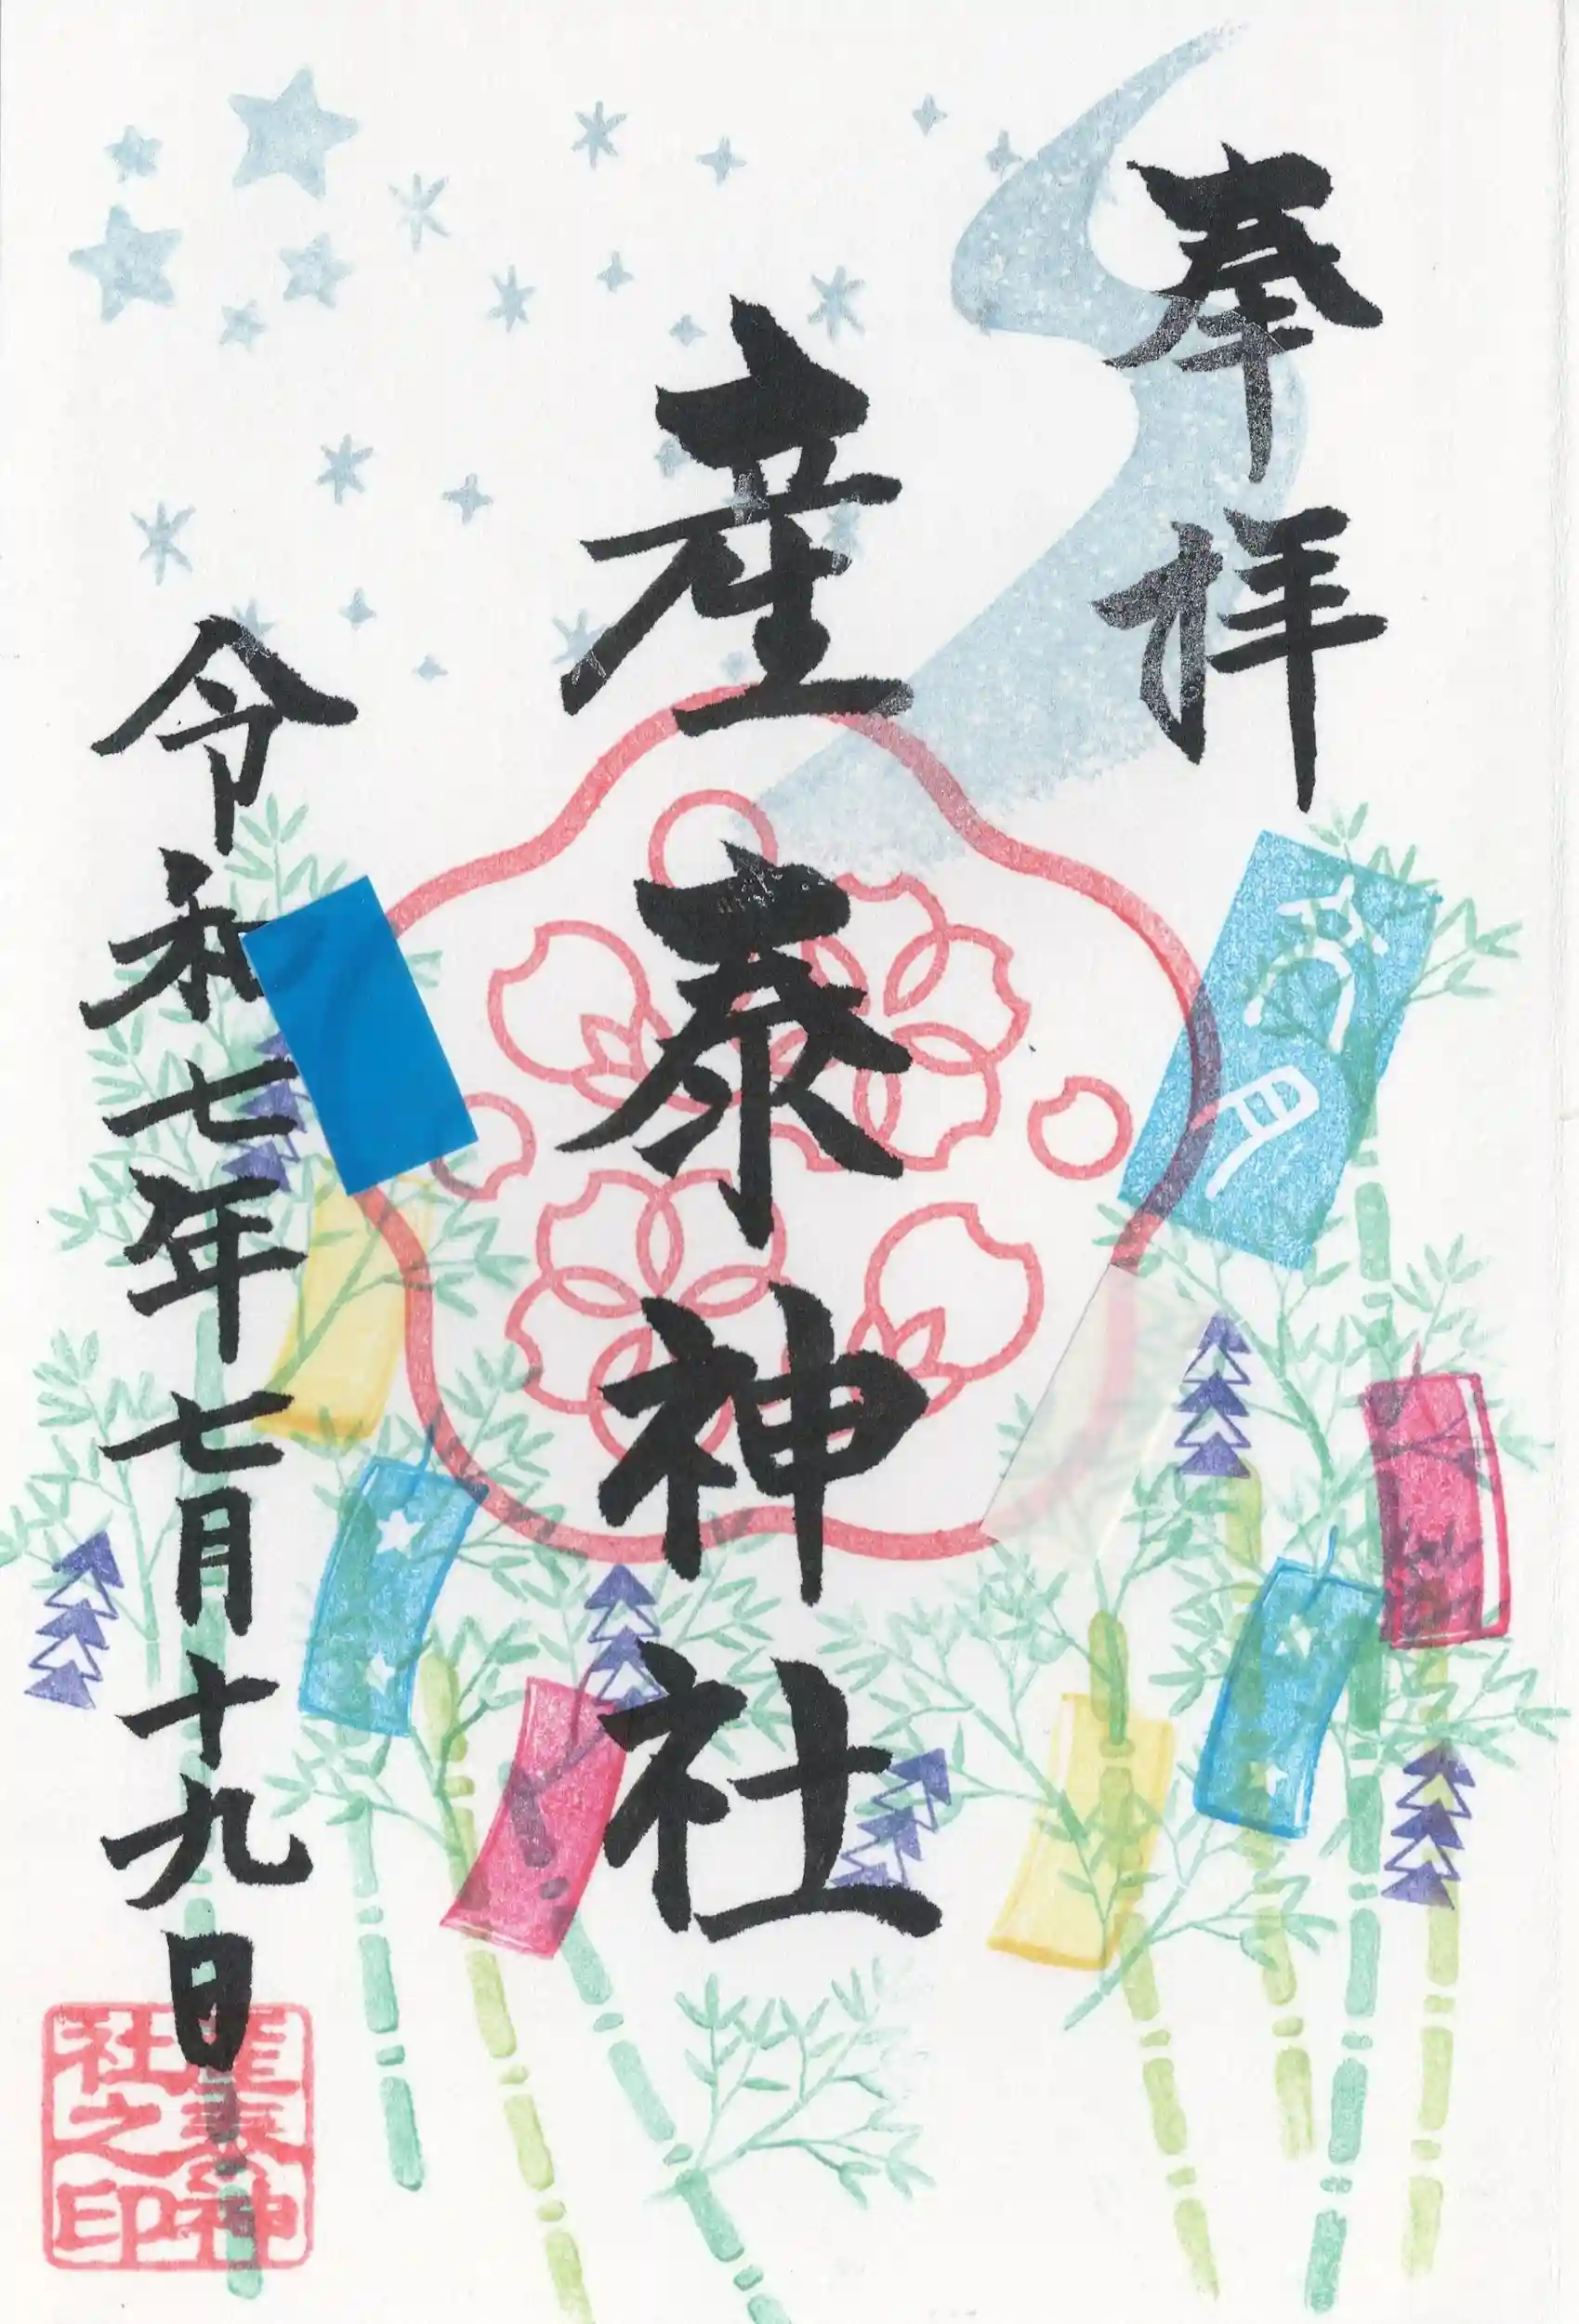 奉拝
産泰神社
令和七年七月十九日
文月
産泰神
社之印